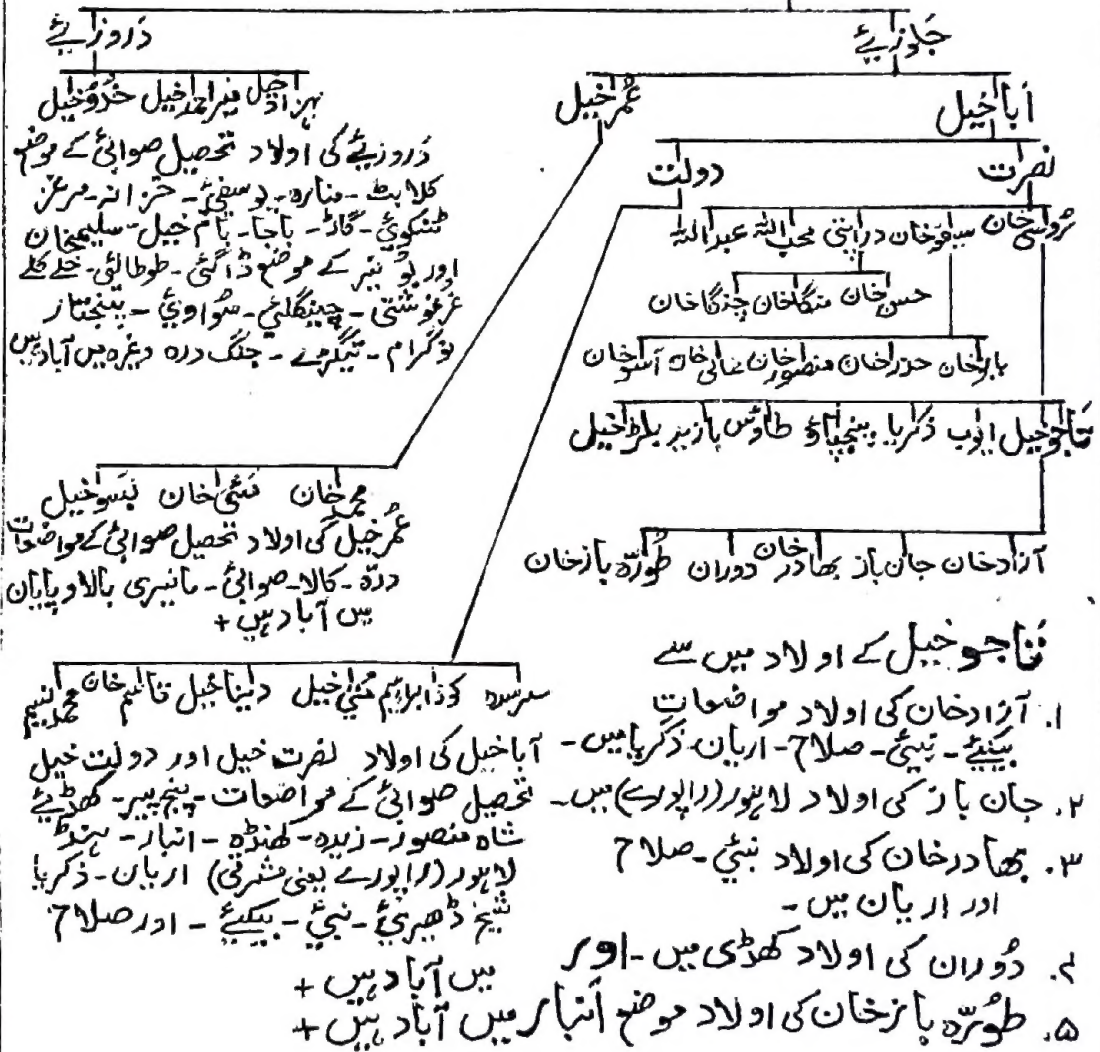 جلوزیٔے
دَروزیٔے
اَباخیل
عُمرخیل
بہزادخیل میراحمدخیل خدُوخیل
دَروزیٔے کی اولاد تحصیل صوابیٔ کے موضع
کلابٹ - منارہ - یوسفیٔ - خزانہ - مرغز
ٹھنڈکوئی - گاڑ - باجا - بام خیل - سلیم خان
اور بونیر کے موضع ڈاگیٔ - طوطالیٔ - خلے کلے
غرغوشتی - چینگلیٔ - سُواویٔ - پنجتار
نوگرام - - جنگ درہ وغیرہ میں آباد ہیں
نصرت
دولت
خان سیافوخان درایتی محب اللہ عبداللہ
حسن خان منگاخان چنڈگاخان
بابوخان حیدرخان منصورخان خان آسوخان
تاجوخیل ایوب ذکریا پنجپاؤ طاوٗس بازید بلڑخیل
آزادخان جان باز بھادرخان دوران طُورّہ بازخان
محمدخان خان خیل
عُمرخیل کی اولاد تحصیل صوابیٔ کے مواضعات
درّہ - کالا - صوابیٔ - مانیری بالا و پایان
میں آباد ہیں +
سرسدہ ابراہیم خیل دیناخیل قاسم خان محمدنیم
آباخیل کی اولاد نصرت خیل اور دولت خیل
تحصیل صوابیٔ کے مواضعات - پنج پیر - کھڈیٔے
شاہ منصور - زیدہ - کھنڈہ - انبار - ہنڈ
لاہور (راپورے یعنی مشرقی) اریان - ذکریا
شیخ ڈھیریٔ - نبیٔ - بیکیٔے - اور صلاح
میں آباد ہیں +
تاجوخیل کے اولاد میں سے
۱. آزادخان کی اولاد مواضعات
بیکیٔے - نبیٔ - صلاح - اریان - ذکریا میں -
۲. جان باز کی اولاد لاہور (راپورے) میں -
۳. بھادرخان کی اولاد نبیٔ - صلاح
اور اریان میں -
۴. دَوران کی اولاد کھڈی میں - اور
۵. طورّہ بازخان کی اولاد موضع اَنبار میں آباد ہیں +